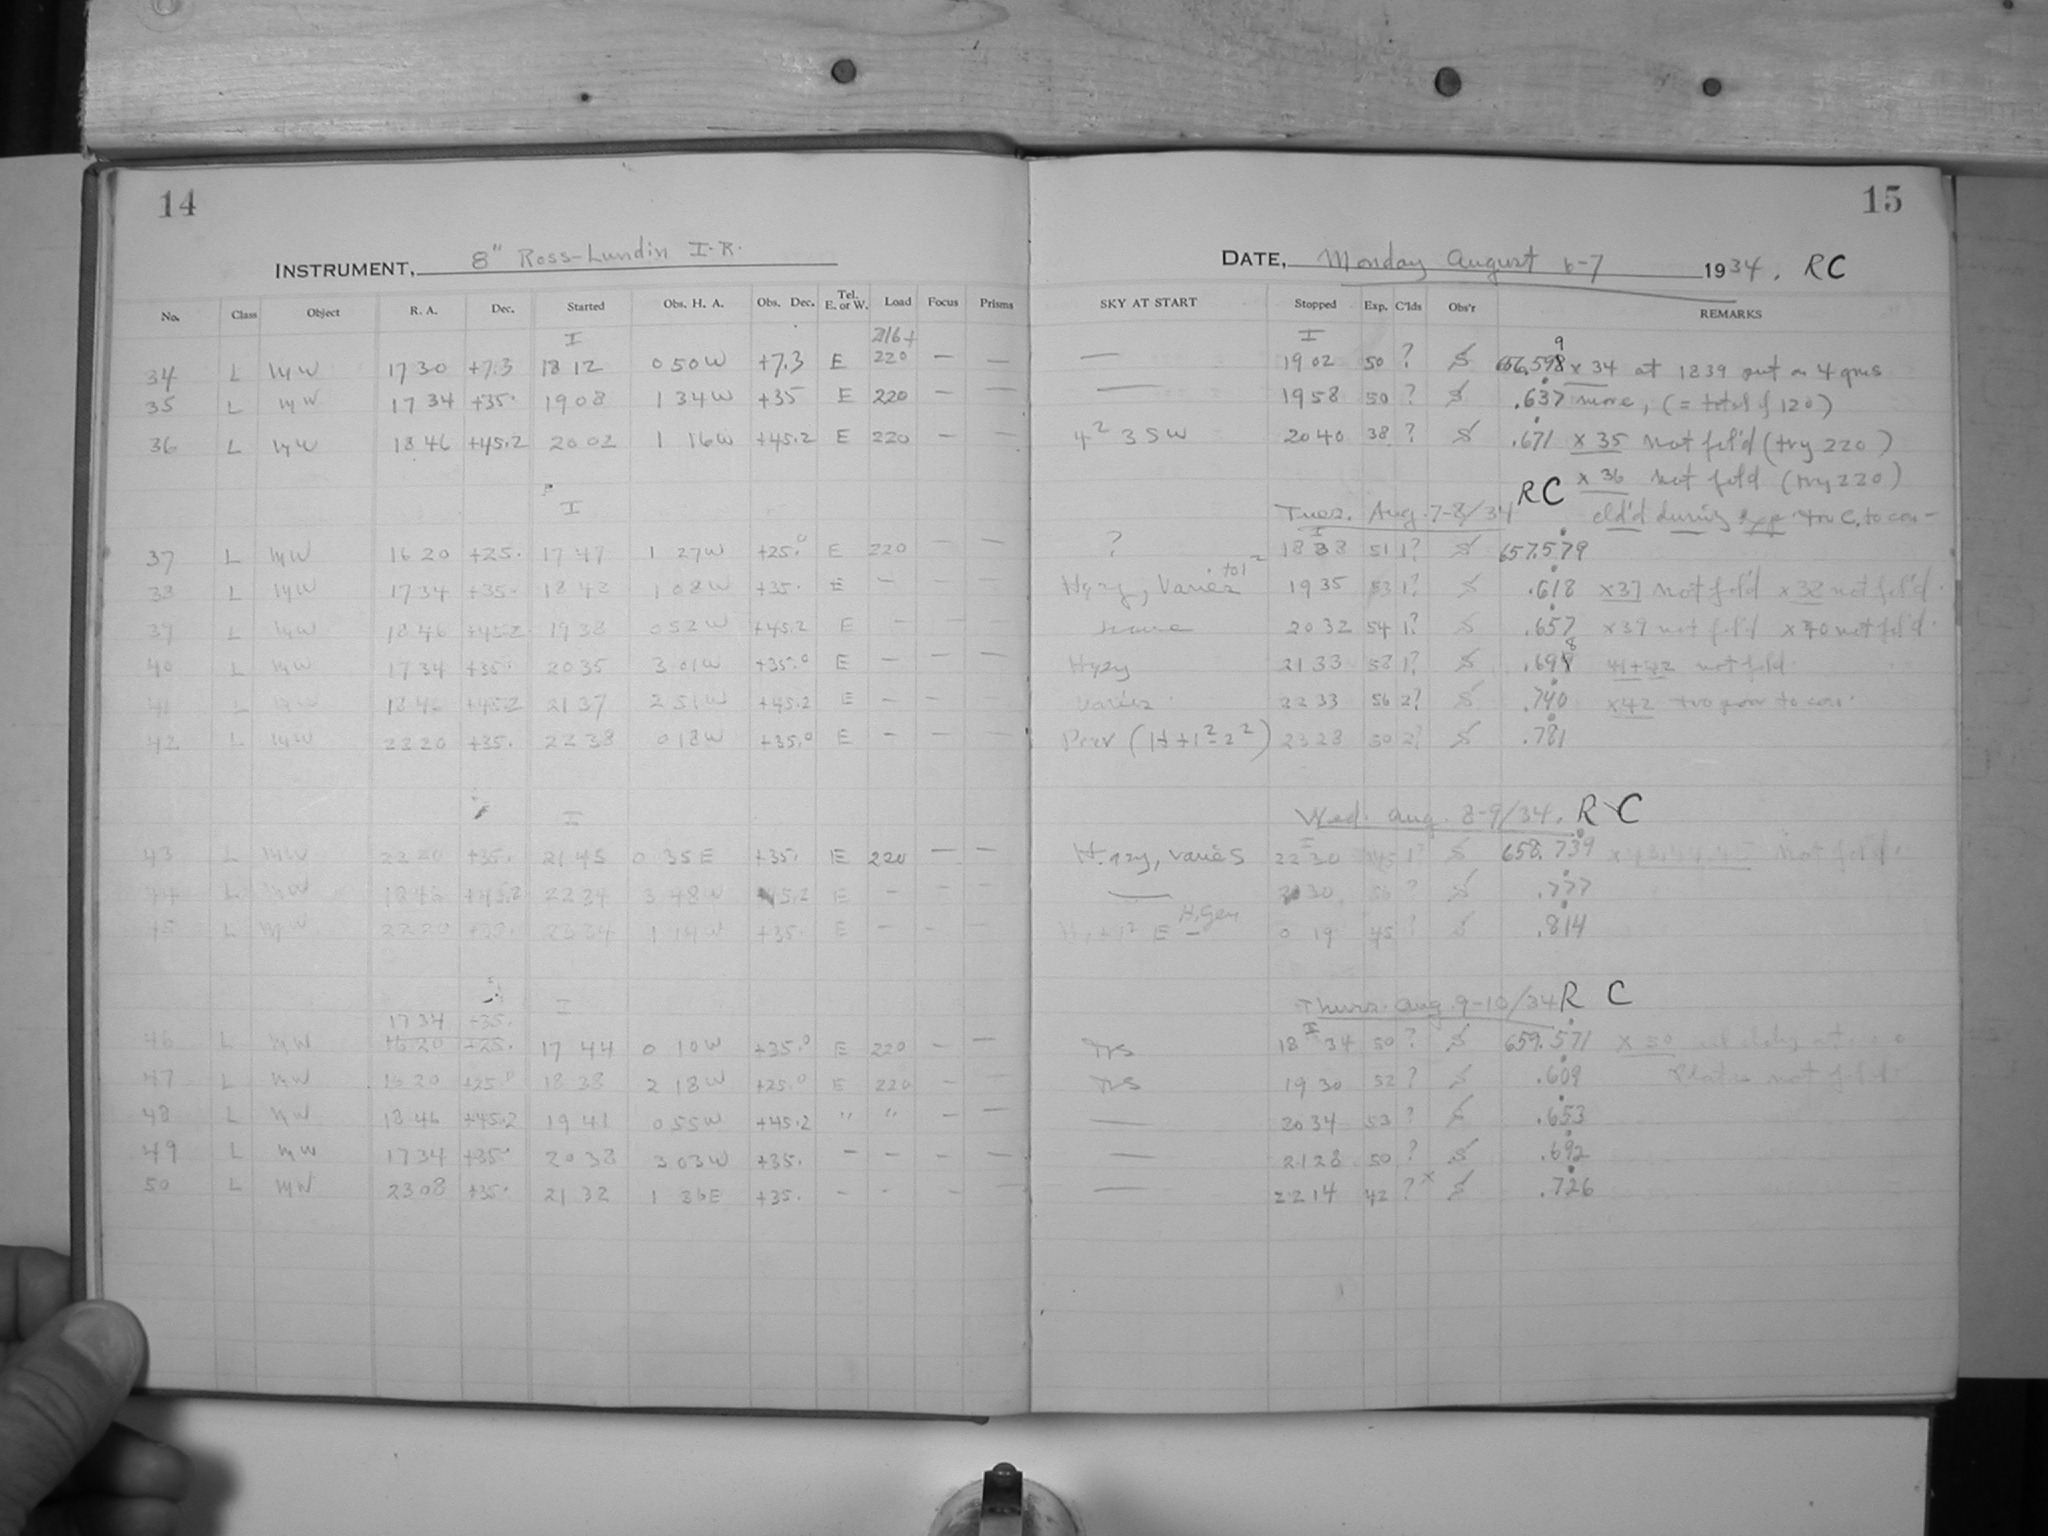 14
INSTRUMENT, 8" Ross-Lundin I.R.
No. Class Object R. A. Dec. Started Obs. H. A. Obs. Dec. Tel. E. or W. Load Focus Prisms
I 216+
34 L MW 17 30 +7.3 18 12 0 50 W +7.3 E 220 — —
35 L MW 17 34 +35. 19 08 1 34 W +35 E 220 — —
36 L MW 18 46 +45.2 20 02 1 16 W +45.2 E 220 — —
I
37 L MW 16 20 +25. 17 47 1 27 W +25.0 E 220 — —
38 L MW 17 34 +35. 18 42 1 08 W +35. E — — —
39 L MW 18 46 +45.2 19 38 0 52 W +45.2 E — — —
40 L MW 17 34 +35. 20 35 3 01 W +35.0 E — — —
41 L MW 18 46 +45.2 21 37 2 51 W +45.2 E — — —
42 L MW 22 20 +35. 22 38 0 18 W +35.0 E — — —
I
43 L MW 22 20 +35. 21 45 0 35 E +35. E 220 — —
44 L MW 18 46 +45.2 22 34 3 48 W +45.2 E — — —
45 L MW 22 20 +35. 23 34 1 14 W +35. E — — —
I
17 34 +35.
46 L MW 16 20 +25. 17 44 0 10 W +35.0 E 220 — —
47 L MW 16 20 +25.0 18 38 2 18 W +25.0 E 220 — —
48 L MW 18 46 +45.2 19 41 0 55 W +45.2 " " — —
49 L MW 17 34 +35. 20 38 3 03 W +35. — — — —
50 L MW 23 08 +35. 21 32 1 36 E +35. — — — —
15
DATE, Monday August 6-7 1934. RC
SKY AT START Stopped Exp. C'lds Obs'r REMARKS
I 9
— 19 02 50 ? S 656.598 x 34 at 1839 put on 4 gms
— 19 58 50 ? S .637 more, (= total of 120)
4² 3 SW 20 40 38 ? S .671 x 35 not fel'd (try 220)
x 36 not feld (try 220)
Tues. Aug. 7-8/34 RC cld'd during exp. to con-
I
? 18 38 51 1? S 657.579
Hazy, Varies to 1² 19 35 53 1? S .618 x37 not fel'd x38 not fel'd.
same 20 32 54 1? S .657 x39 not fel'd x40 not fel'd.
8
Hazy 21 33 58 1? S .698 41+42 not feld.
Varies. 22 33 56 2? S .740 x42 too poor to con.
Poor (1²-2²) 23 28 50 2? S .781
Wed. Aug. 8-9/34. RC
I
Hazy, varies 22 30 45 1? S 658.739 x 43, 44, 45 not fel'd.
— 23 30 56 ? S .777
E — 0 19 45 ? S .814
Thurs. Aug. 9-10/34 RC
I
18 34 50 ? S 659.571 x 50
19 30 52 ? S .609 Plates not feld.
— 20 34 53 ? S .653
— 21 28 50 ? S .692
— 22 14 42 ? x S .726